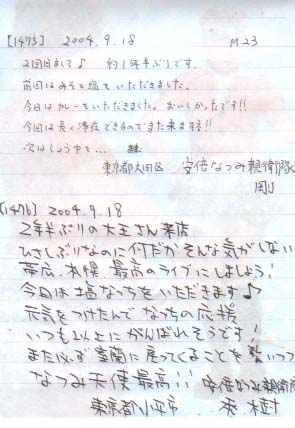 [1475] 2004.9.18 M23
2回目まして♪ 約1年半ぶりです。
前回はみそと塩をいただきました。
今日はカレーをいただきました。おいしかったです!!
今回は長く滞在できるのでまた来ます!!
次はしょうゆを…
東京都大田区 安倍なつみ親衛隊
剛
[1476] 2004.9.18
2年半ぶりの大王さん来店
ひさしぶりなのに何だかそんな気がしない
帯広、札幌、最高のライブにしましょう!
今日は塩なっちをいただきます♪
元気をつけたんで なっちの応援
いつも以上にがんばれそうです!
また必ず室蘭に戻ってくることを
なつみ天使最高!! 安倍なつみ親衛隊
東京都小平市 秀樹